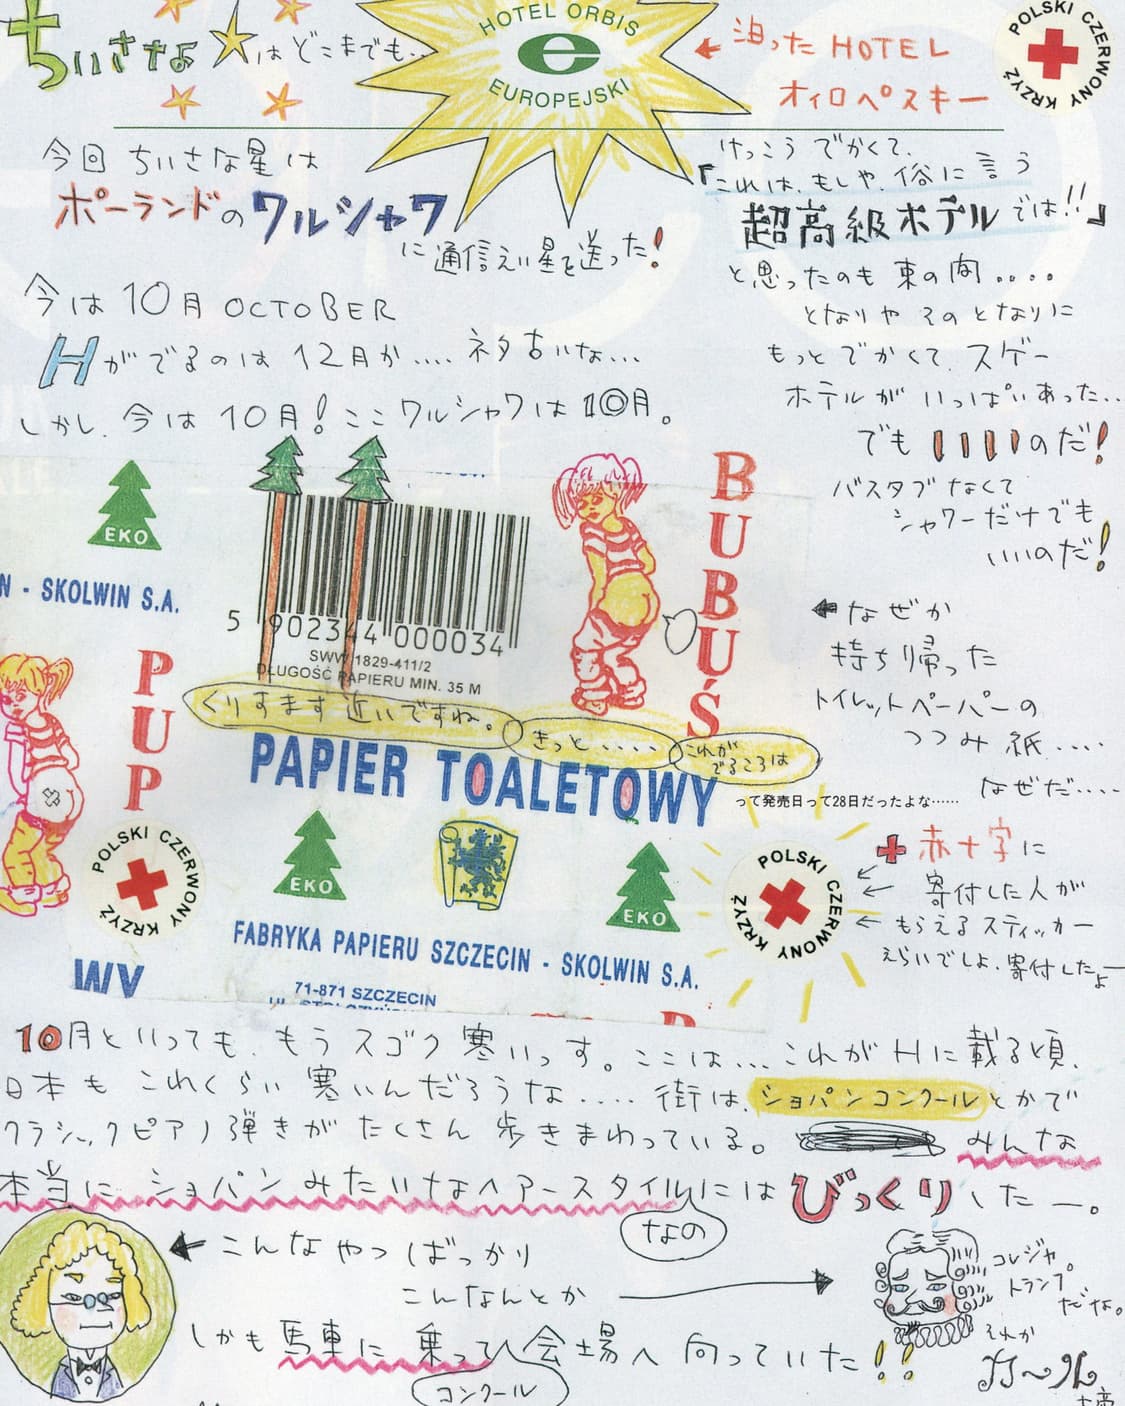 ちいさな☆はどこまでも…
HOTEL ORBIS
e
EUROPEJSKI
← 泊った HOTEL
オイロペスキー
POLSKI CZERWONY KRZYŻ
今回 ちいさな星は
ポーランドのワルシャワ
に通信えい星を送った!
今は10月 OCTOBER
Hがでるのは12月か.... ネタ古いな...
しかし、今は10月! ここワルシャワは10月。
けっこう でかくて、
「これは、もしや、俗に言う
超高級ホテルでは!!」
と思ったのも束の間....
となりや そのとなりに
もっと でかくて、スゲー
ホテルが いっぱいあった..
でもいいのだ!
バスタブなくて
シャワーだけでも
いいのだ!
← なぜか
持ち帰った
トイレットペーパーの
つつみ紙....
なぜだ....
EKO
N - SKOLWIN S.A.
5 902344 000034
SWW 1829-411/2
DŁUGOŚĆ PAPIERU MIN. 35 M
BUBUŚ
PUP
くりすます近いですね。
きっと....
これが
でるころは
PAPIER TOALETOWY
って発売日って28日だったよな……
EKO
EKO
POLSKI CZERWONY KRZYŻ
POLSKI CZERWONY KRZYŻ
赤十字に
寄付した人が
もらえるスティッカー
えらいでしょ、寄付したよー
FABRYKA PAPIERU SZCZECIN - SKOLWIN S.A.
71-871 SZCZECIN
WY
10月といっても、もうスゴク寒いっす。ここは... これがHに載る頃、
日本もこれくらい寒いんだろうな.... 街は、ショパンコンクールとかで
クラシックピアノ弾きがたくさん歩きまわっている。 みんな
本当に ショパンみたいなヘアースタイルにはびっくりしたー。
なの
← こんなやつ ばっかり
こんなんとか →
しかも馬車に乗って会場へ向っていた!!
コンクール
コレジャ
トランプ
だな。
それか
カール
大帝